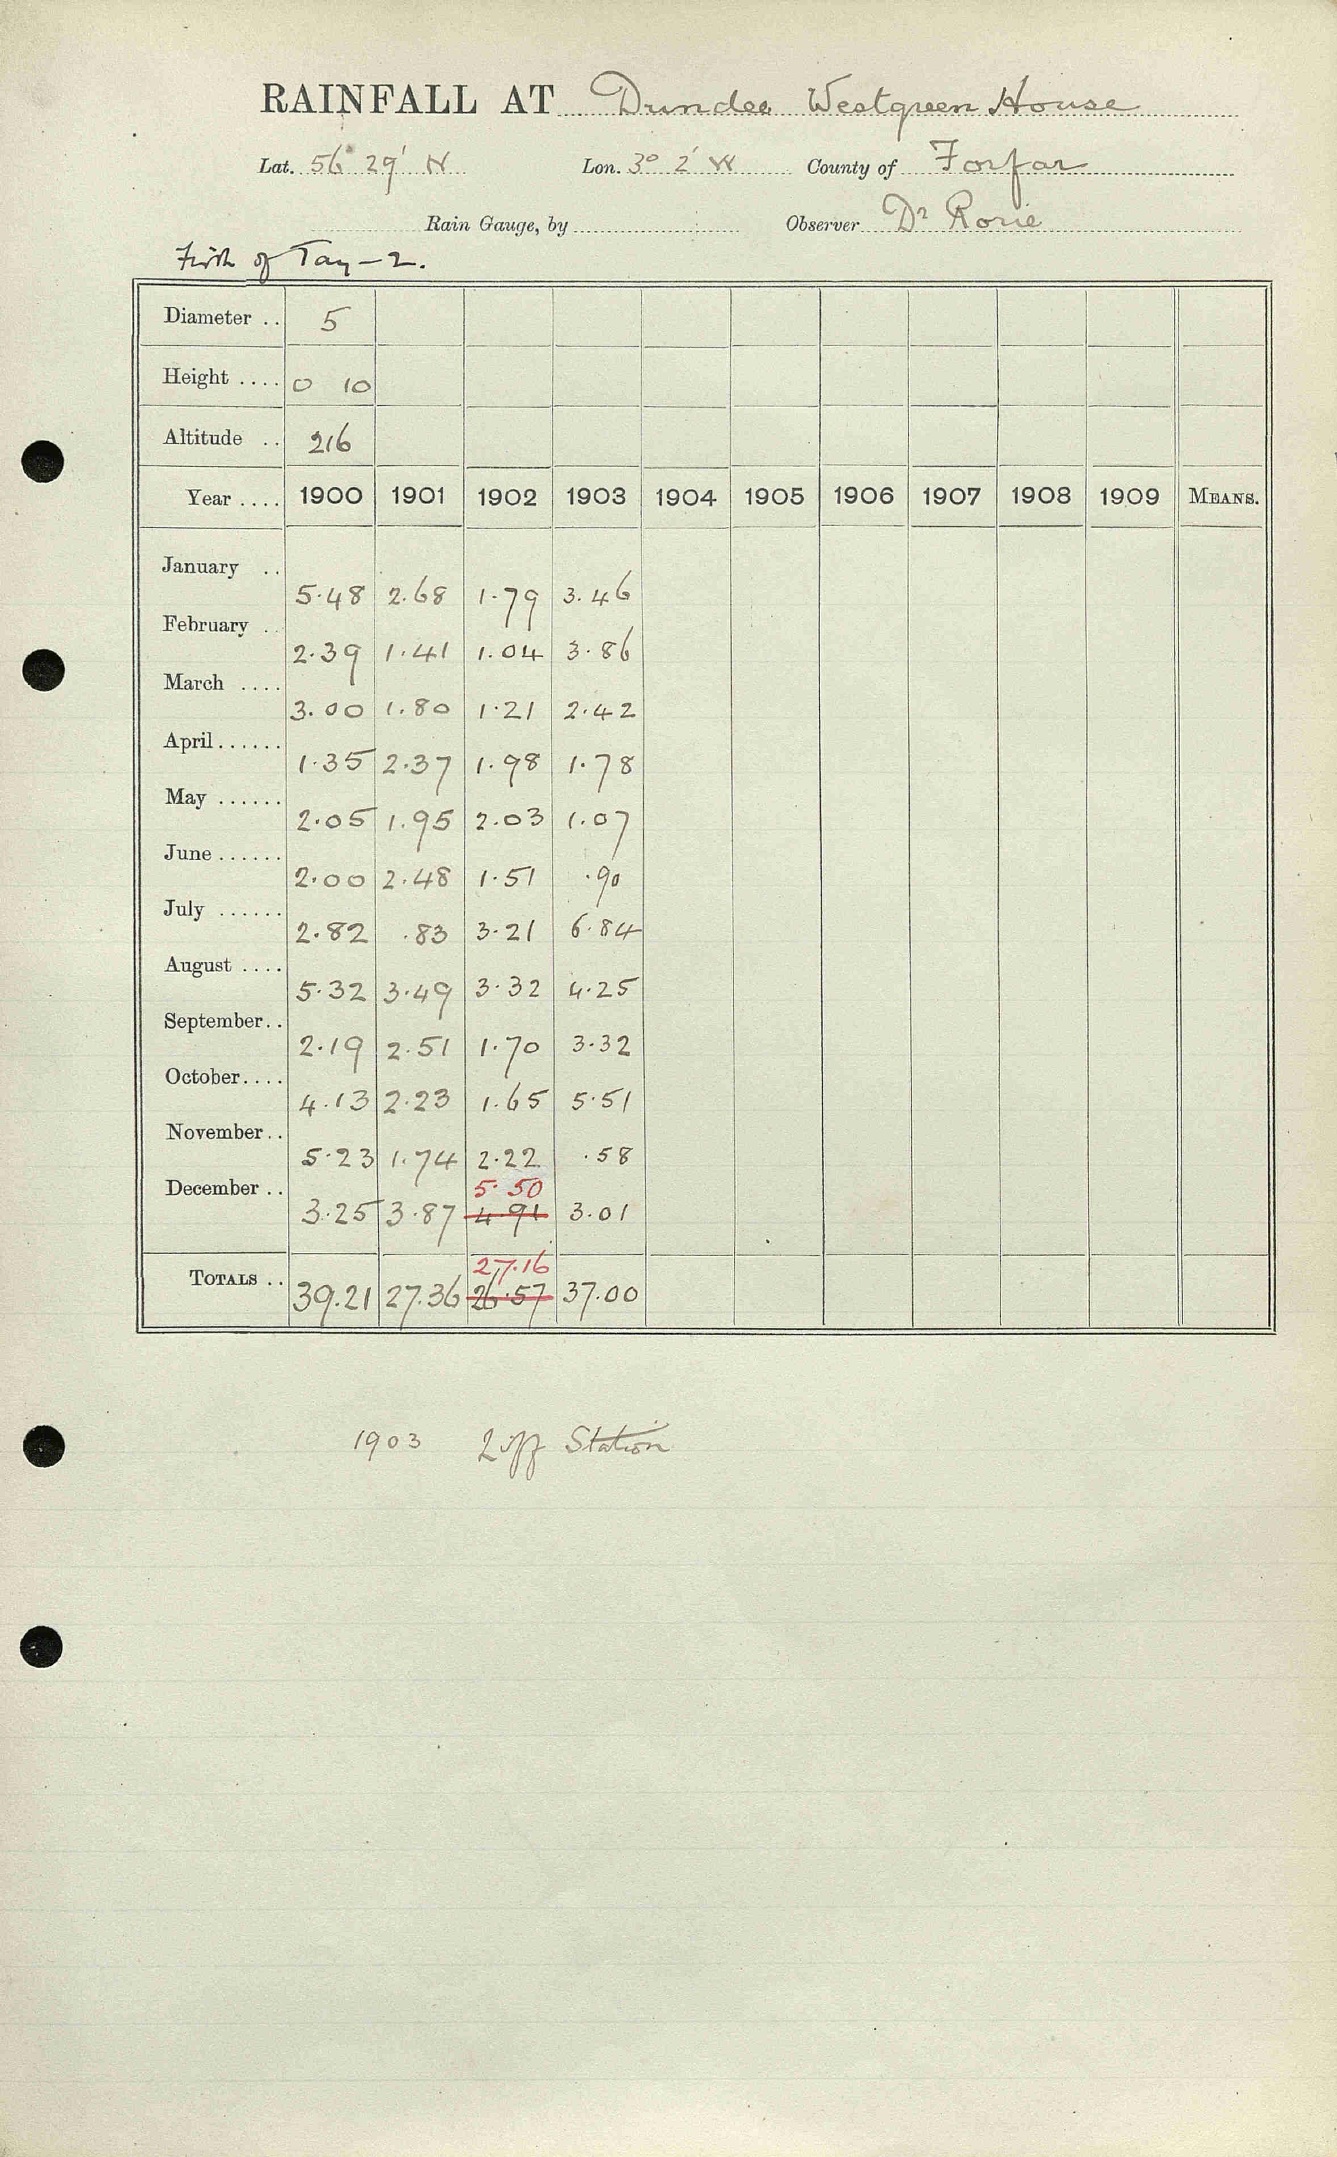 RAINFALL AT Dundee Westgreen House
Lat. 56° 29' N Lon. 3° 2' W County of Forfar
Rain Gauge, by Observer Dr Rorie
Firth of Tay - 2.
Diameter .. 5
Height .... 0 10
Altitude .. 216
Year .... 1900 1901 1902 1903 1904 1905 1906 1907 1908 1909 MEANS.
January .. 5.48 2.68 1.79 3.46
February .. 2.39 1.41 1.04 3.86
March .... 3.00 1.80 1.21 2.42
April...... 1.35 2.37 1.98 1.78
May ...... 2.05 1.95 2.03 1.07
June ...... 2.00 2.48 1.51 .90
July ...... 2.82 .83 3.21 6.84
August .... 5.32 3.49 3.32 4.25
September.. 2.19 2.51 1.70 3.32
October.... 4.13 2.23 1.65 5.51
November.. 5.23 1.74 2.22 .58
5.50
December .. 3.25 3.87 4.91 3.01
27.16
TOTALS .. 39.21 27.36 26.57 37.00
1903 Liff Station